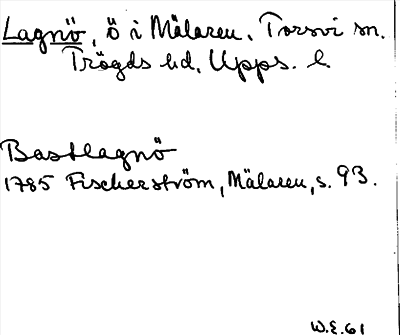 Lagnö, ö i Mälaren, Torsvi sn.
Trögds hd, Upps. l.
Bastlagnö
1785 Fischerström, Mälaren, s. 93.
W.E. 61